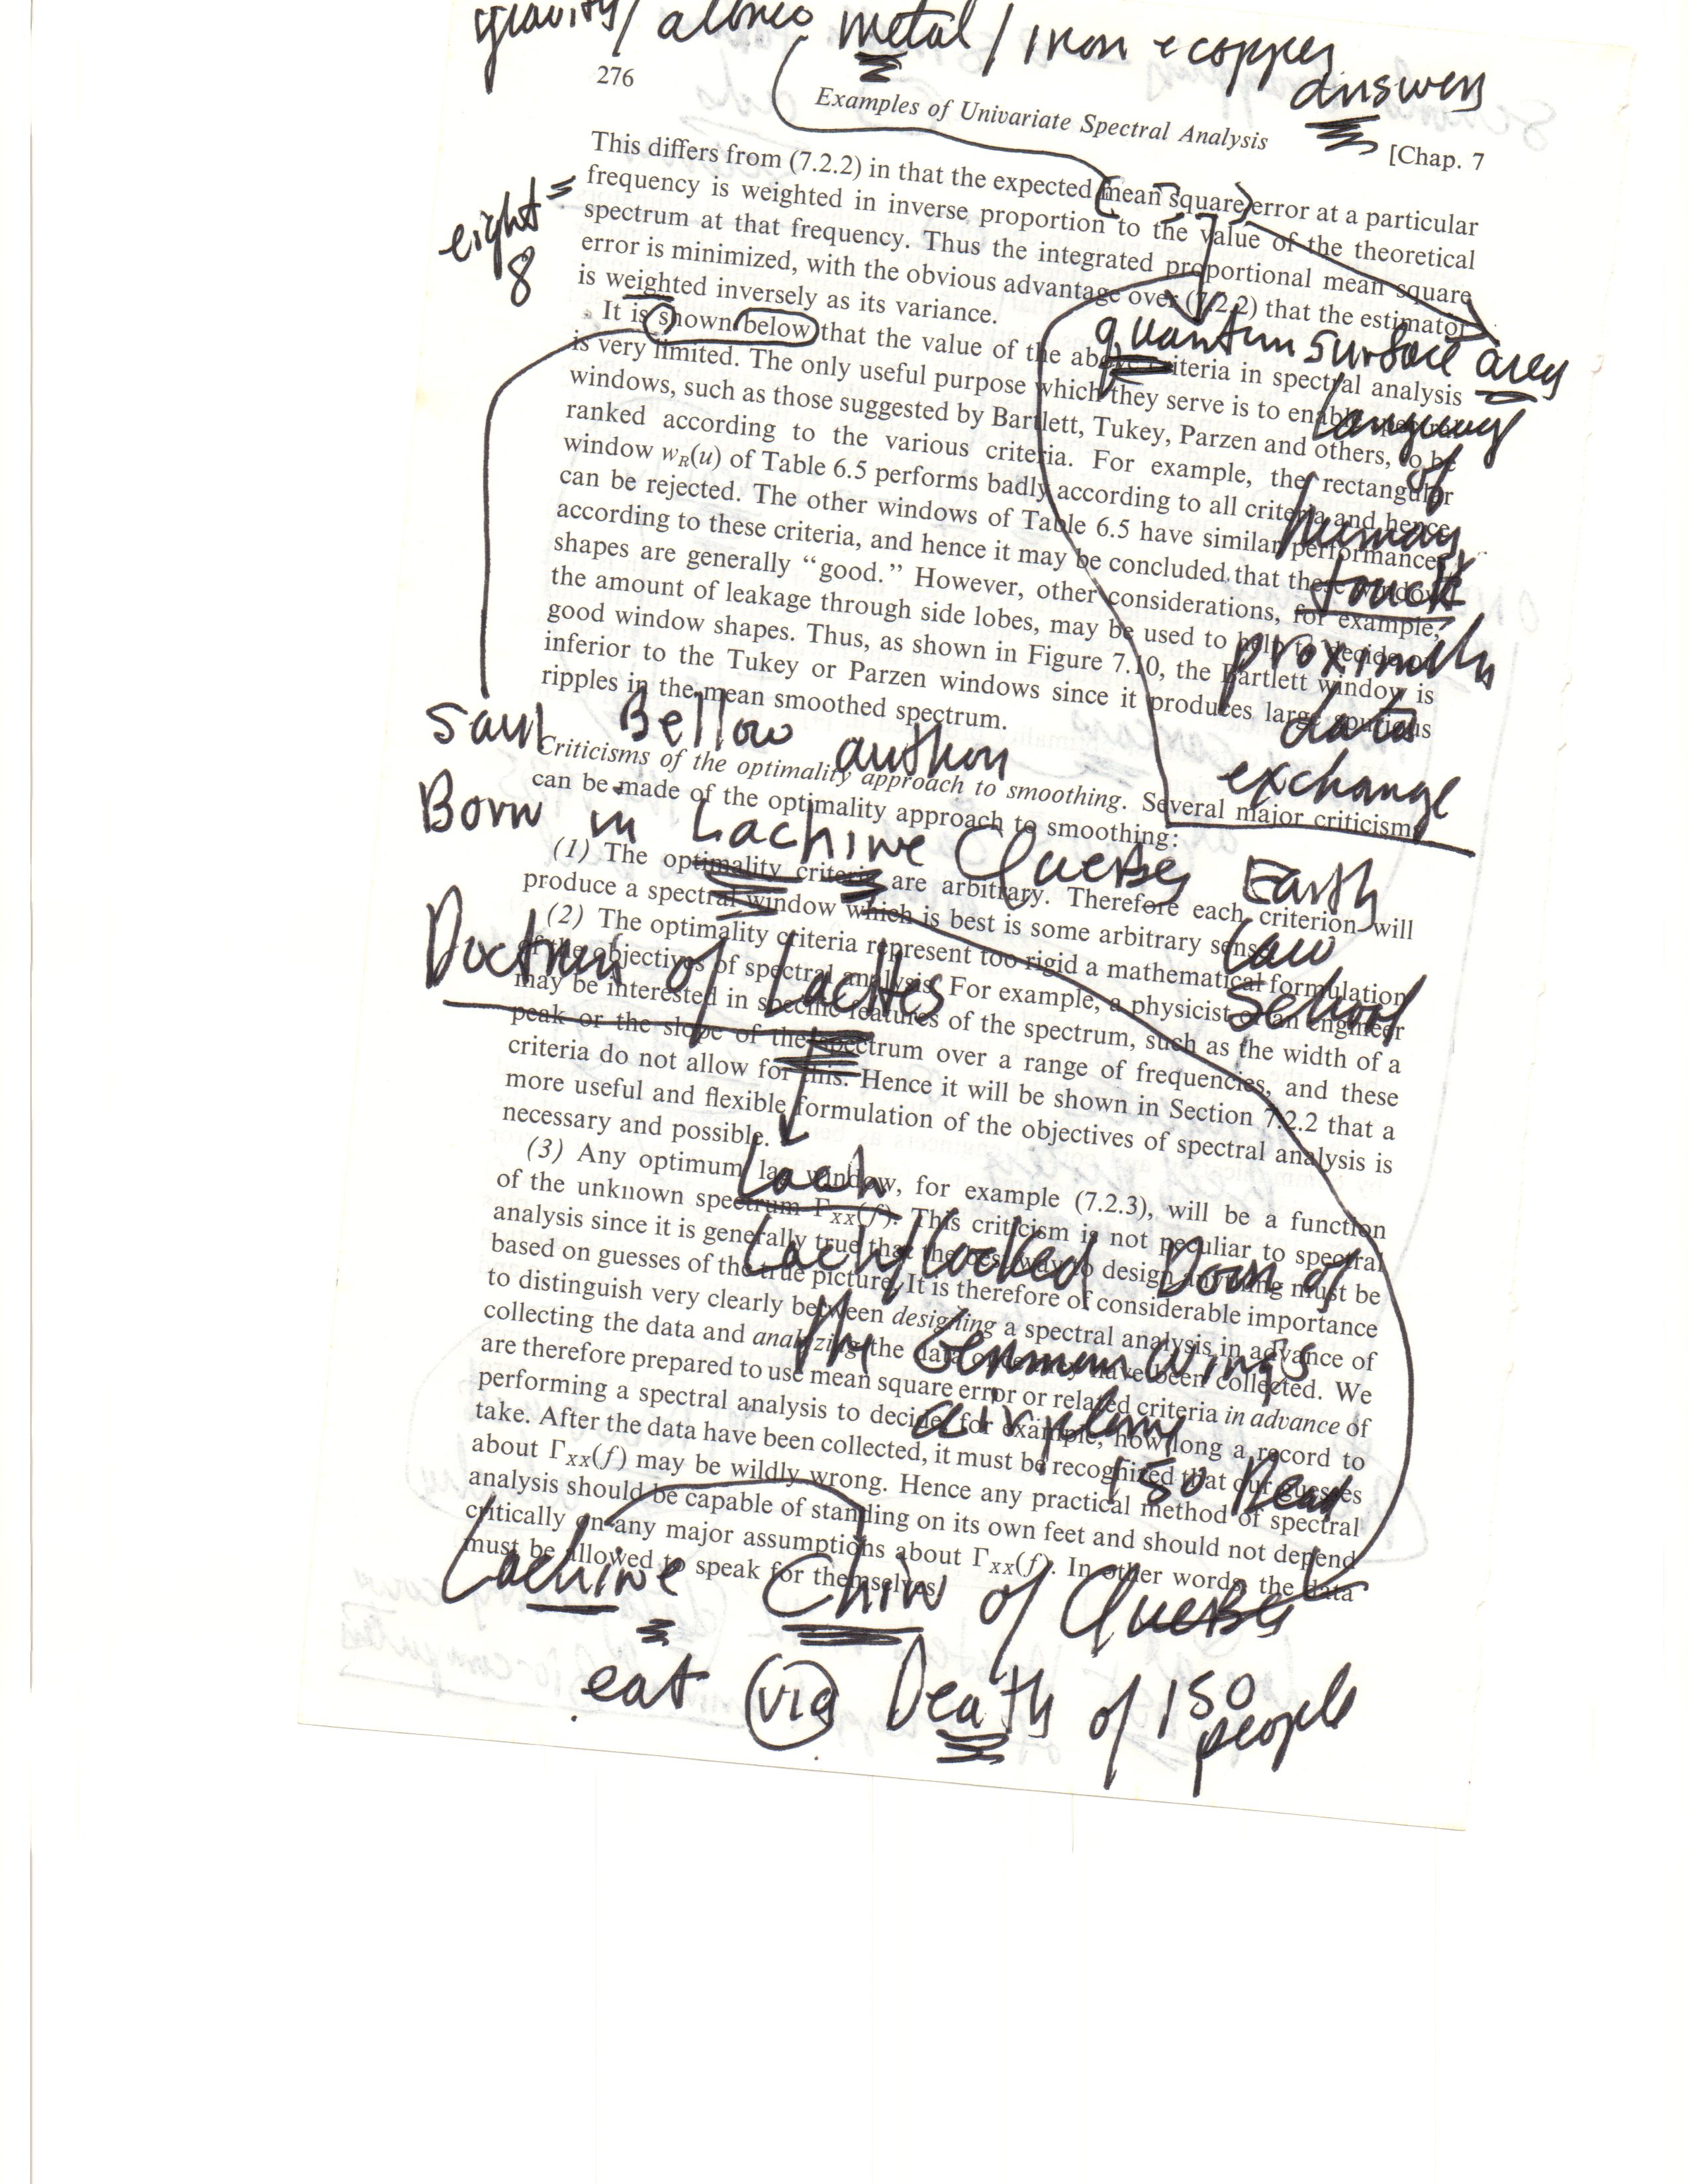 gravity / albneo metal / iron & copper
answers
276
Examples of Univariate Spectral Analysis
[Chap. 7
This differs from (7.2.2) in that the expected (mean square) error at a particular
frequency is weighted in inverse proportion to the value of the theoretical
spectrum at that frequency. Thus the integrated proportional mean square
error is minimized, with the obvious advantage over (7.2.2) that the estimator
is weighted inversely as its variance.
eight =
8
It is shown below that the value of the above criteria in spectral analysis
is very limited. The only useful purpose which they serve is to enable
windows, such as those suggested by Bartlett, Tukey, Parzen and others, to be
ranked according to the various criteria. For example, the rectangular
window wR(u) of Table 6.5 performs badly according to all criteria and hence
can be rejected. The other windows of Table 6.5 have similar performances
according to these criteria, and hence it may be concluded that these window
shapes are generally “good.” However, other considerations, for example,
the amount of leakage through side lobes, may be used to help to decide on
good window shapes. Thus, as shown in Figure 7.10, the Bartlett window is
inferior to the Tukey or Parzen windows since it produces large spurious
ripples in the mean smoothed spectrum.
quantum surface area
language
of
human
touch
proximity
data
exchange
Saul Bellow author
Criticisms of the optimality approach to smoothing. Several major criticisms
can be made of the optimality approach to smoothing:
Born in Lachine Quebec Earth
Law
School
(1) The optimality criteria are arbitrary. Therefore each criterion will
produce a spectral window which is best is some arbitrary sense.
(2) The optimality criteria represent too rigid a mathematical formulation
of the objectives of spectral analysis. For example, a physicist or an engineer
may be interested in specific features of the spectrum, such as the width of a
peak or the slope of the spectrum over a range of frequencies, and these
criteria do not allow for this. Hence it will be shown in Section 7.2.2 that a
more useful and flexible formulation of the objectives of spectral analysis is
necessary and possible.
Doctrine of Laches
(3) Any optimum lag window, for example (7.2.3), will be a function
of the unknown spectrum Γxx(f). This criticism is not peculiar to spectral
analysis since it is generally true that the best way to design anything must be
based on guesses of the true picture. It is therefore of considerable importance
to distinguish very clearly between designing a spectral analysis in advance of
collecting the data and analyzing the data once they have been collected. We
are therefore prepared to use mean square error or related criteria in advance of
performing a spectral analysis to decide, for example, how long a record to
take. After the data have been collected, it must be recognized that our guesses
about Γxx(f) may be wildly wrong. Hence any practical method of spectral
analysis should be capable of standing on its own feet and should not depend
critically on any major assumptions about Γxx(f). In other words, the data
must be allowed to speak for themselves.
Lach
Lach/locked Door of
the German Wings
airplane
150 Dead
Lachine Chin of Quebec
eat via Death of 150
people